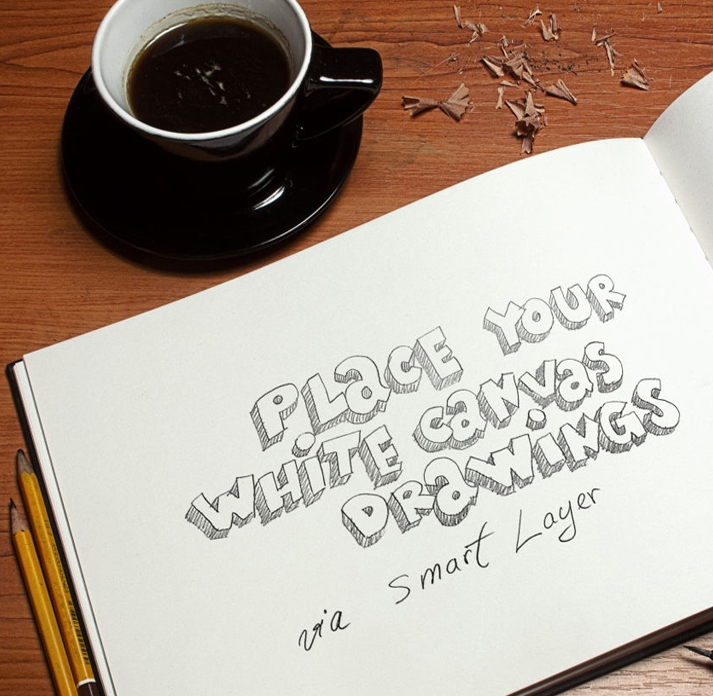 PLaCE YOUR
WHiTE CaNVas
DRaWiNGS
via Smart Layer